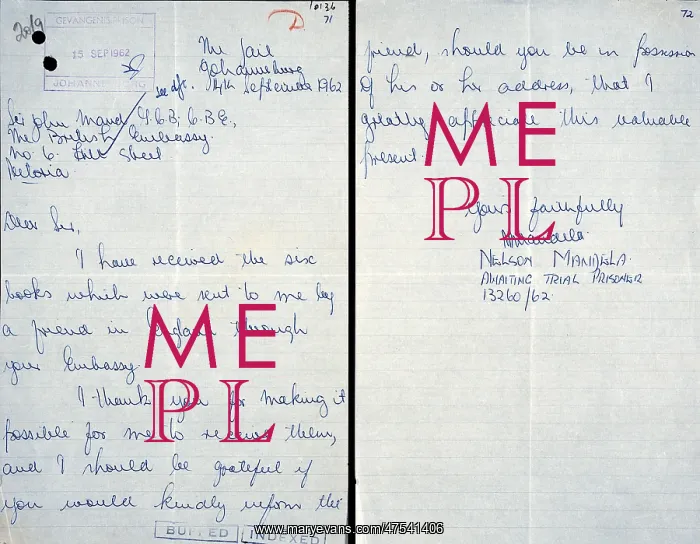 10136
71
2019
GEVANGENIS/PRISON
15 SEP 1962
JOHANNESBURG
The Jail
Johannesburg
14th September 1962
Sir John Maud G.C.B; C.B.E.,
The British Embassy.
No 6. Hill Street
Pretoria.
Dear Sir,
I have received the six
books which were sent to me by
a friend in England through
your Embassy.
I thank you for making it
possible for me to receive them,
and I should be grateful if
you would kindly inform the
BUFFED
INDEXED
72
friend, should you be in possession
of his or her address, that I
greatly appreciate this valuable
present.
Yours faithfully
NMandela.
NELSON MANDELA.
AWAITING TRIAL PRISONER
13260/62.
ME
PL
ME
PL
www.maryevans.com/47541406